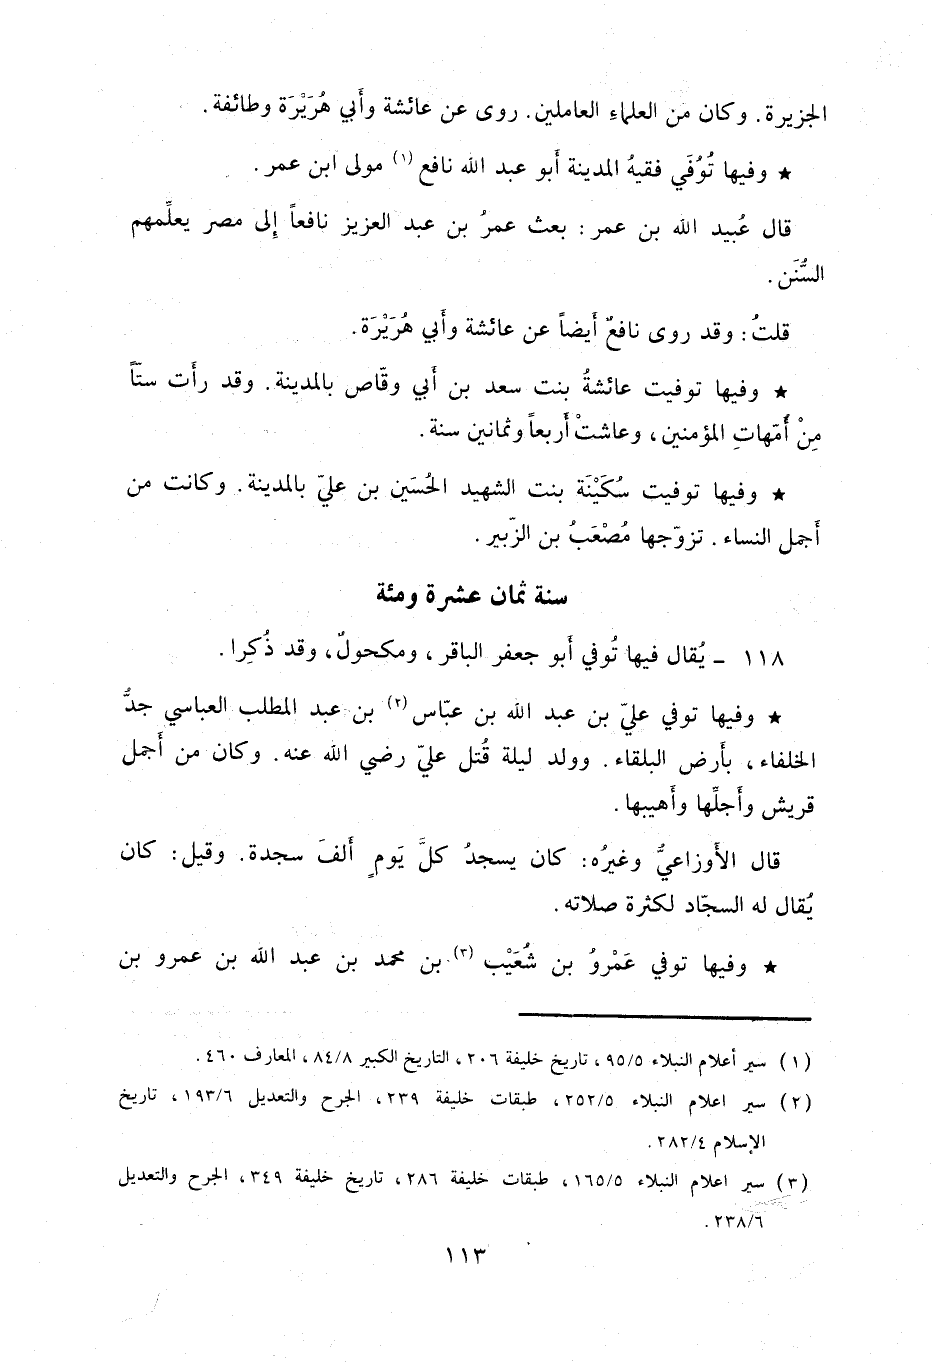 الجزيرة. وكان من العلماء العاملين. روى عن عائشة وأَبي هُرَيْرَة وطائفة.
★ وفيها تُوُفَي فقيهُ المدينة أَبو عبد الله نافع (١) مولى ابن عمر.
قال عُبيد الله بن عمر: بعث عمرُ بن عبد العزيز نافعاً إِلى مصر يعلِّمهم
السُّنَن.
قلتُ: وقد روى نافعٌ أَيضاً عن عائشة وأَبي هُرَيْرَة.
★ وفيها توفيت عائشةُ بنت سعد بن أَبي وقّاص بالمدينة. وقد رأَت ستّاً
مِنْ أُمّهاتِ المؤمنين، وعاشتْ أَربعاً وثمانين سنة.
★ وفيها توفيت سُكَيْنَة بنت الشهيد الحُسَين بن عليّ بالمدينة. وكانت من
أَجمل النساء. تزوّجها مُصْعَبُ بن الزّبير.
سنة ثمان عشرة ومئة
١١٨ ـ يُقال فيها تُوفي أَبو جعفر الباقر، ومكحولٌ، وقد ذُكِرا.
★ وفيها توفي عليّ بن عبد الله بن عبّاس (٢) بن عبد المطلب العباسي جدُّ
الخلفاء، بأَرض البلقاء. وولد ليلة قُتل عليّ رضي الله عنه. وكان من أَجمل
قريش وأَجلِّها وأَهيبها.
قال الأَوزاعيُّ وغيرُه: كان يسجدُ كلَّ يَومٍ أَلفَ سجدة. وقيل: كان
يُقال له السجّاد لكثرة صلاته.
★ وفيها توفي عَمْرُو بن شُعَيْب (٣) بن محمد بن عبد الله بن عمرو بن
(١) سير أعلام النبلاء ٩٥/٥، تاريخ خليفة ٢٠٦، التاريخ الكبير ٨٤/٨، المعارف ٤٦٠.
(٢) سير اعلام النبلاء ٢٥٢/٥، طبقات خليفة ٢٣٩، الجرح والتعديل ١٩٣/٦، تاريخ
الإسلام ٢٨٢/٤.
(٣) سير اعلام النبلاء ١٦٥/٥، طبقات خليفة ٢٨٦، تاريخ خليفة ٣٤٩، الجرح والتعديل
٢٣٨/٦.
١١٣